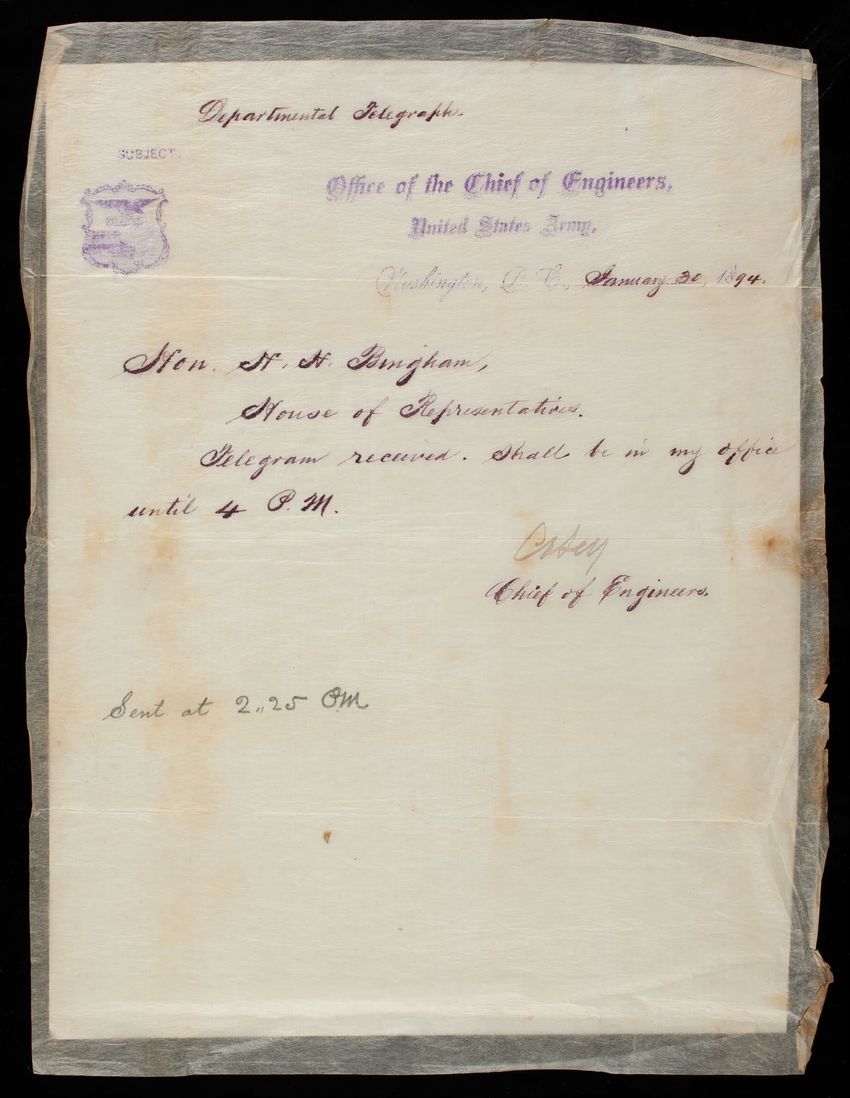 Departmental Telegraph.
SUBJECT.
Office of the Chief of Engineers,
United States Army,
Washington, D. C., January 30, 1894.
Hon. H. H. Bingham,
House of Representatives.
Telegram received. Shall be in my office
until 4 P.M.
Casey
Chief of Engineers.
Sent at 2.25 PM